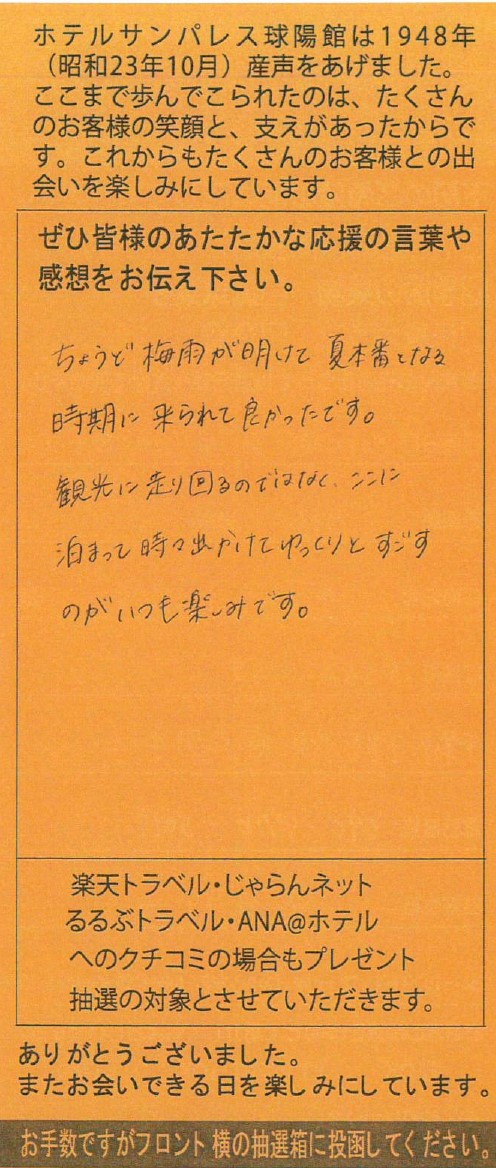 ホテルサンパレス球陽館は1948年
（昭和23年10月）産声をあげました。
ここまで歩んでこられたのは、たくさん
のお客様の笑顔と、支えがあったからで
す。これからもたくさんのお客様との出
会いを楽しみにしています。
ぜひ皆様のあたたかな応援の言葉や
感想をお伝え下さい。
ちょうど梅雨が明けて夏本番となる
時期に来られて良かったです。
観光に走り回るのではなく、ここに
泊まって時々出かけてゆっくりとすごす
のがいつも楽しみです。
楽天トラベル・じゃらんネット
るるぶトラベル・ANA@ホテル
へのクチコミの場合もプレゼント
抽選の対象とさせていただきます。
ありがとうございました。
またお会いできる日を楽しみにしています。
お手数ですがフロント横の抽選箱に投函してください。